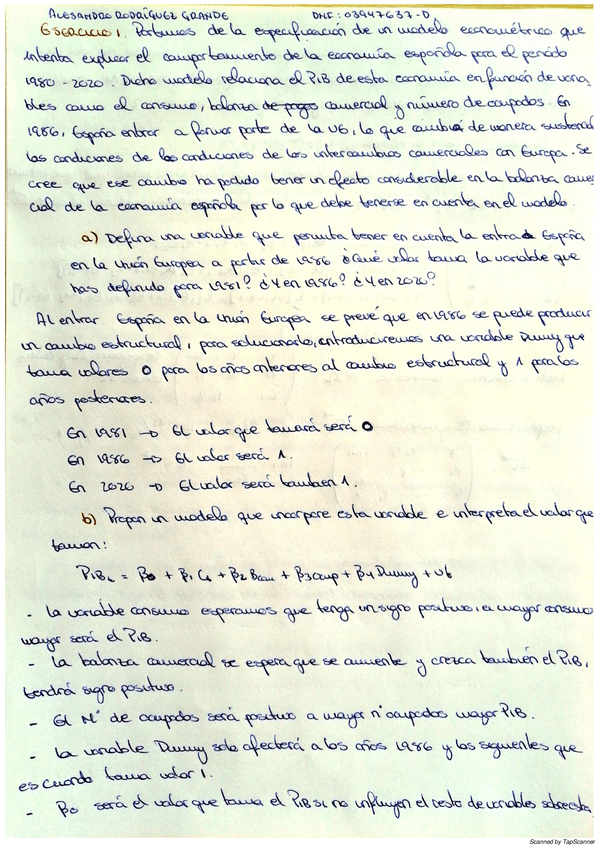 ALESANDRO RODRÍGUEZ GRANDE DNI: 03947637-D
EJERCICIO 1. Partimos de la especificación de un modelo econométrico que
intenta explicar el comportamiento de la economía española para el periodo
1980-2020. Dicho modelo relaciona el PIB de esta economía en función de varia
bles como el consumo, balanza de pagos comercial y número de ocupados. En
1986, España entrar a formar parte de la UE, lo que cambia de manera sustancial
las condiciones de los condiciones de los intercambios comerciales con Europa. Se
cree que ese cambio ha podido tener un efecto considerable en la balanza comer
cial de la economía española por lo que debe tenerse en cuenta en el modelo.
a) Defina una variable que permita tener en cuenta la entrada España
en la Unión Europea a partir de 1986 ¿Qué valor toma la variable que
has definido para 1981? ¿Y en 1986? ¿Y en 2020?
Al entrar España en la Unión Europea se prevé que en 1986 se puede producir
un cambio estructural, para solucionarlo, introduciremos una variable Dummy que
toma valores 0 para los años anteriores al cambio estructural y 1 para los
años posteriores.
En 1981 → El valor que tomará será 0
En 1986 → El valor será 1.
En 2020 → El valor será tambien 1.
b) Propon un modelo que incorpore esta variable e interpreta el valor que
toman:
PIBt = β0 + β1 Ct + β2 Bcom + β3 ocup + β4 Dummy + ut
- La variable consumo esperamos que tenga un signo positivo, a mayor consumo
mayor será el PIB.
- La balanza comercial se espera que se aumente y crezca también el PIB,
tendrá signo positivo.
- El Nº de ocupados será positivo a mayor nº ocupados mayor PIB.
- La variable Dummy solo afectará a los años 1986 y los siguientes que
es cuando toma valor 1.
- β0 será el valor que toma el PIB si no influyen el resto de variables sobre esta.
Scanned by TapScanner